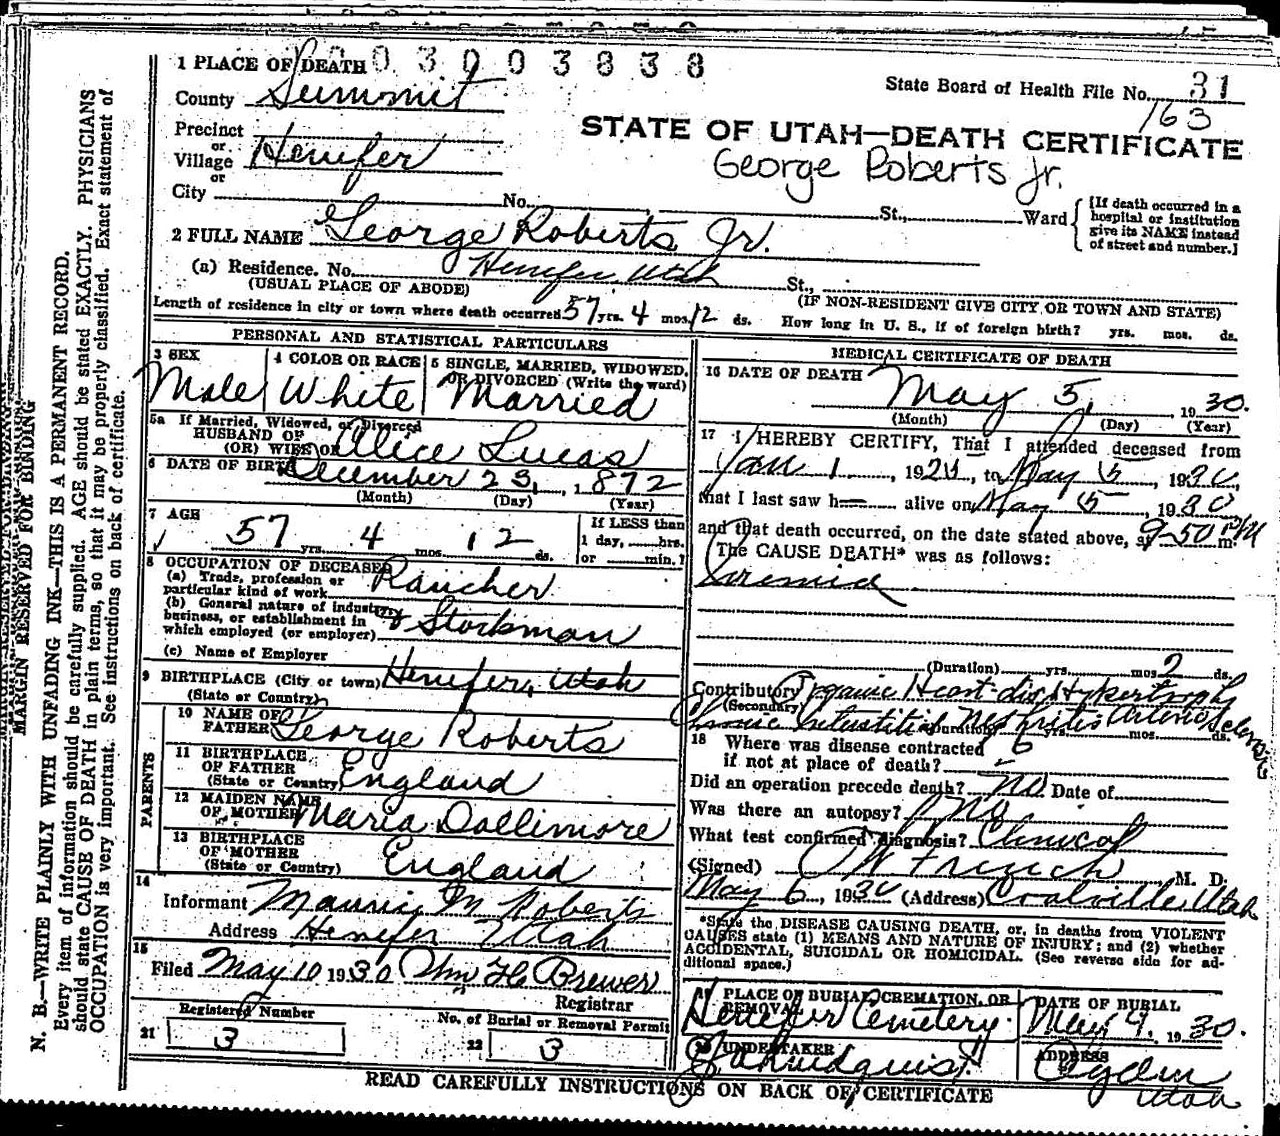 1 PLACE OF DEATH 0 3 0 0 3 8 3 8
State Board of Health File No. 31
163
County Summit
STATE OF UTAH—DEATH CERTIFICATE
George Roberts Jr.
Precinct
or
Village Henefer
or
City No. St., Ward
[If death occurred in a
hospital or institution
give its NAME instead
of street and number.]
2 FULL NAME George Roberts Jr.
(a) Residence. No. Henefer, Utah St.,
(USUAL PLACE OF ABODE) (IF NON-RESIDENT GIVE CITY OR TOWN AND STATE)
Length of residence in city or town where death occurred 57 yrs. 4 mos. 12 ds. How long in U. S., if of foreign birth? yrs. mos. ds.
PERSONAL AND STATISTICAL PARTICULARS
3 SEX
Male
4 COLOR OR RACE
White
5 SINGLE, MARRIED, WIDOWED,
OR DIVORCED (Write the word)
Married
5a If Married, Widowed, or Divorced
HUSBAND OF
(OR) WIFE OF Alice Lucas
6 DATE OF BIRTH December 23, 1872
(Month) (Day) (Year)
7 AGE
57 yrs. 4 mos. 12 ds.
If LESS than
1 day, hrs.
or min.?
8 OCCUPATION OF DECEASED
(a) Trade, profession or
particular kind of work Rancher
(b) General nature of industry,
business, or establishment in
which employed (or employer) & Stockman
(c) Name of Employer
9 BIRTHPLACE (City or town) Henefer, Utah
(State or Country)
PARENTS
10 NAME OF
FATHER George Roberts
11 BIRTHPLACE
OF FATHER
(State or Country) England
12 MAIDEN NAME
OF MOTHER Maria Dallimore
13 BIRTHPLACE
OF MOTHER
(State or Country) England
14
Informant M Roberts
Address Henefer Utah
15
Filed May 10 1930 Wm H. Brewer
Registrar
Registered Number
21 3
No. of Burial or Removal Permit
22 3
MEDICAL CERTIFICATE OF DEATH
16 DATE OF DEATH May 5, 1930.
(Month) (Day) (Year)
17 I HEREBY CERTIFY, That I attended deceased from
Jan 1, 192, to May 5 1930,
that I last saw h alive on May 5, 1930
and that death occurred, on the date stated above, at 9-50 P.M. m.
The CAUSE DEATH* was as follows:
Uremia
(Duration) yrs. mos. 2 ds.
Contributory Organic Heart-dis. Hypertrophy
(Secondary)
Chronic Interstitial Nephritis Arterio Sclerosis
(Duration) 6 yrs. mos. ds.
18 Where was disease contracted
if not at place of death?
Did an operation precede death? no Date of
Was there an autopsy? no
What test confirmed diagnosis? Clinical
(Signed) French M. D.
May 6, 1930 (Address) Coalville, Utah
*State the DISEASE CAUSING DEATH, or, in deaths from VIOLENT
CAUSES state (1) MEANS AND NATURE OF INJURY; and (2) whether
ACCIDENTAL, SUICIDAL OR HOMICIDAL. (See reverse side for ad-
ditional space.)
19 PLACE OF BURIAL, CREMATION, OR
REMOVAL
Henefer Cemetery
DATE OF BURIAL
May 9, 1930.
20 UNDERTAKER
ADDRESS
Ogden
Utah
READ CAREFULLY INSTRUCTIONS ON BACK OF CERTIFICATE
MARGIN RESERVED FOR BINDING
N. B.—WRITE PLAINLY WITH UNFADING INK—THIS IS A PERMANENT RECORD.
Every item of information should be carefully supplied. AGE should be stated EXACTLY. PHYSICIANS
should state CAUSE OF DEATH in plain terms, so that it may be properly classified. Exact statement of
OCCUPATION is very important. See instructions on back of certificate.